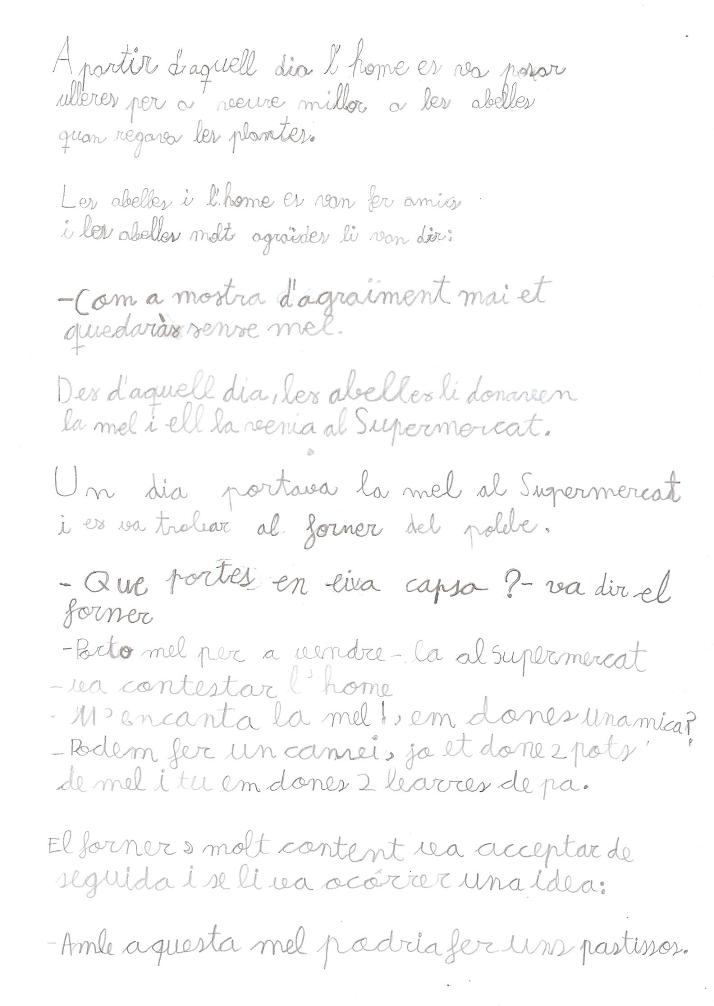 A partir d'aquell dia l'home es va posar
ulleres per a veure millor a les abelles
quan regava les plantes.
Les abelles i l'home es van fer amics
i les abelles molt agraïdes li van dir:
-Com a mostra d'agraïment mai et
quedaràs sense mel.
Des d'aquell dia, les abelles li donaven
la mel i ell la venia al Supermercat.
Un dia portava la mel al Supermercat
i es va trobar al forner del poble.
- Que portes en eixa capsa ?- va dir el
forner
-Porto mel per a vendre-la al supermercat
-va contestar l'home
- M'encanta la mel!, em dones una mica?
-Podem fer un canvi, jo et done 2 pots
de mel i tu em dones 2 barres de pa.
El forner, molt content va acceptar de
seguida i se li va ocórrer una idea:
-Amb aquesta mel podria fer uns pastissos.